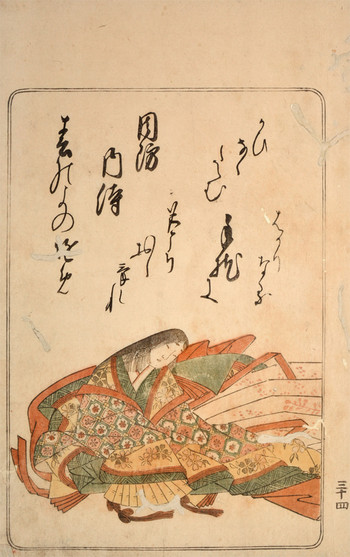 周防
内侍
春のよの
ゆめ
はかり
なる
手枕に
かひ
なく
たゝむ
名こそ
おし
けれ
三十四